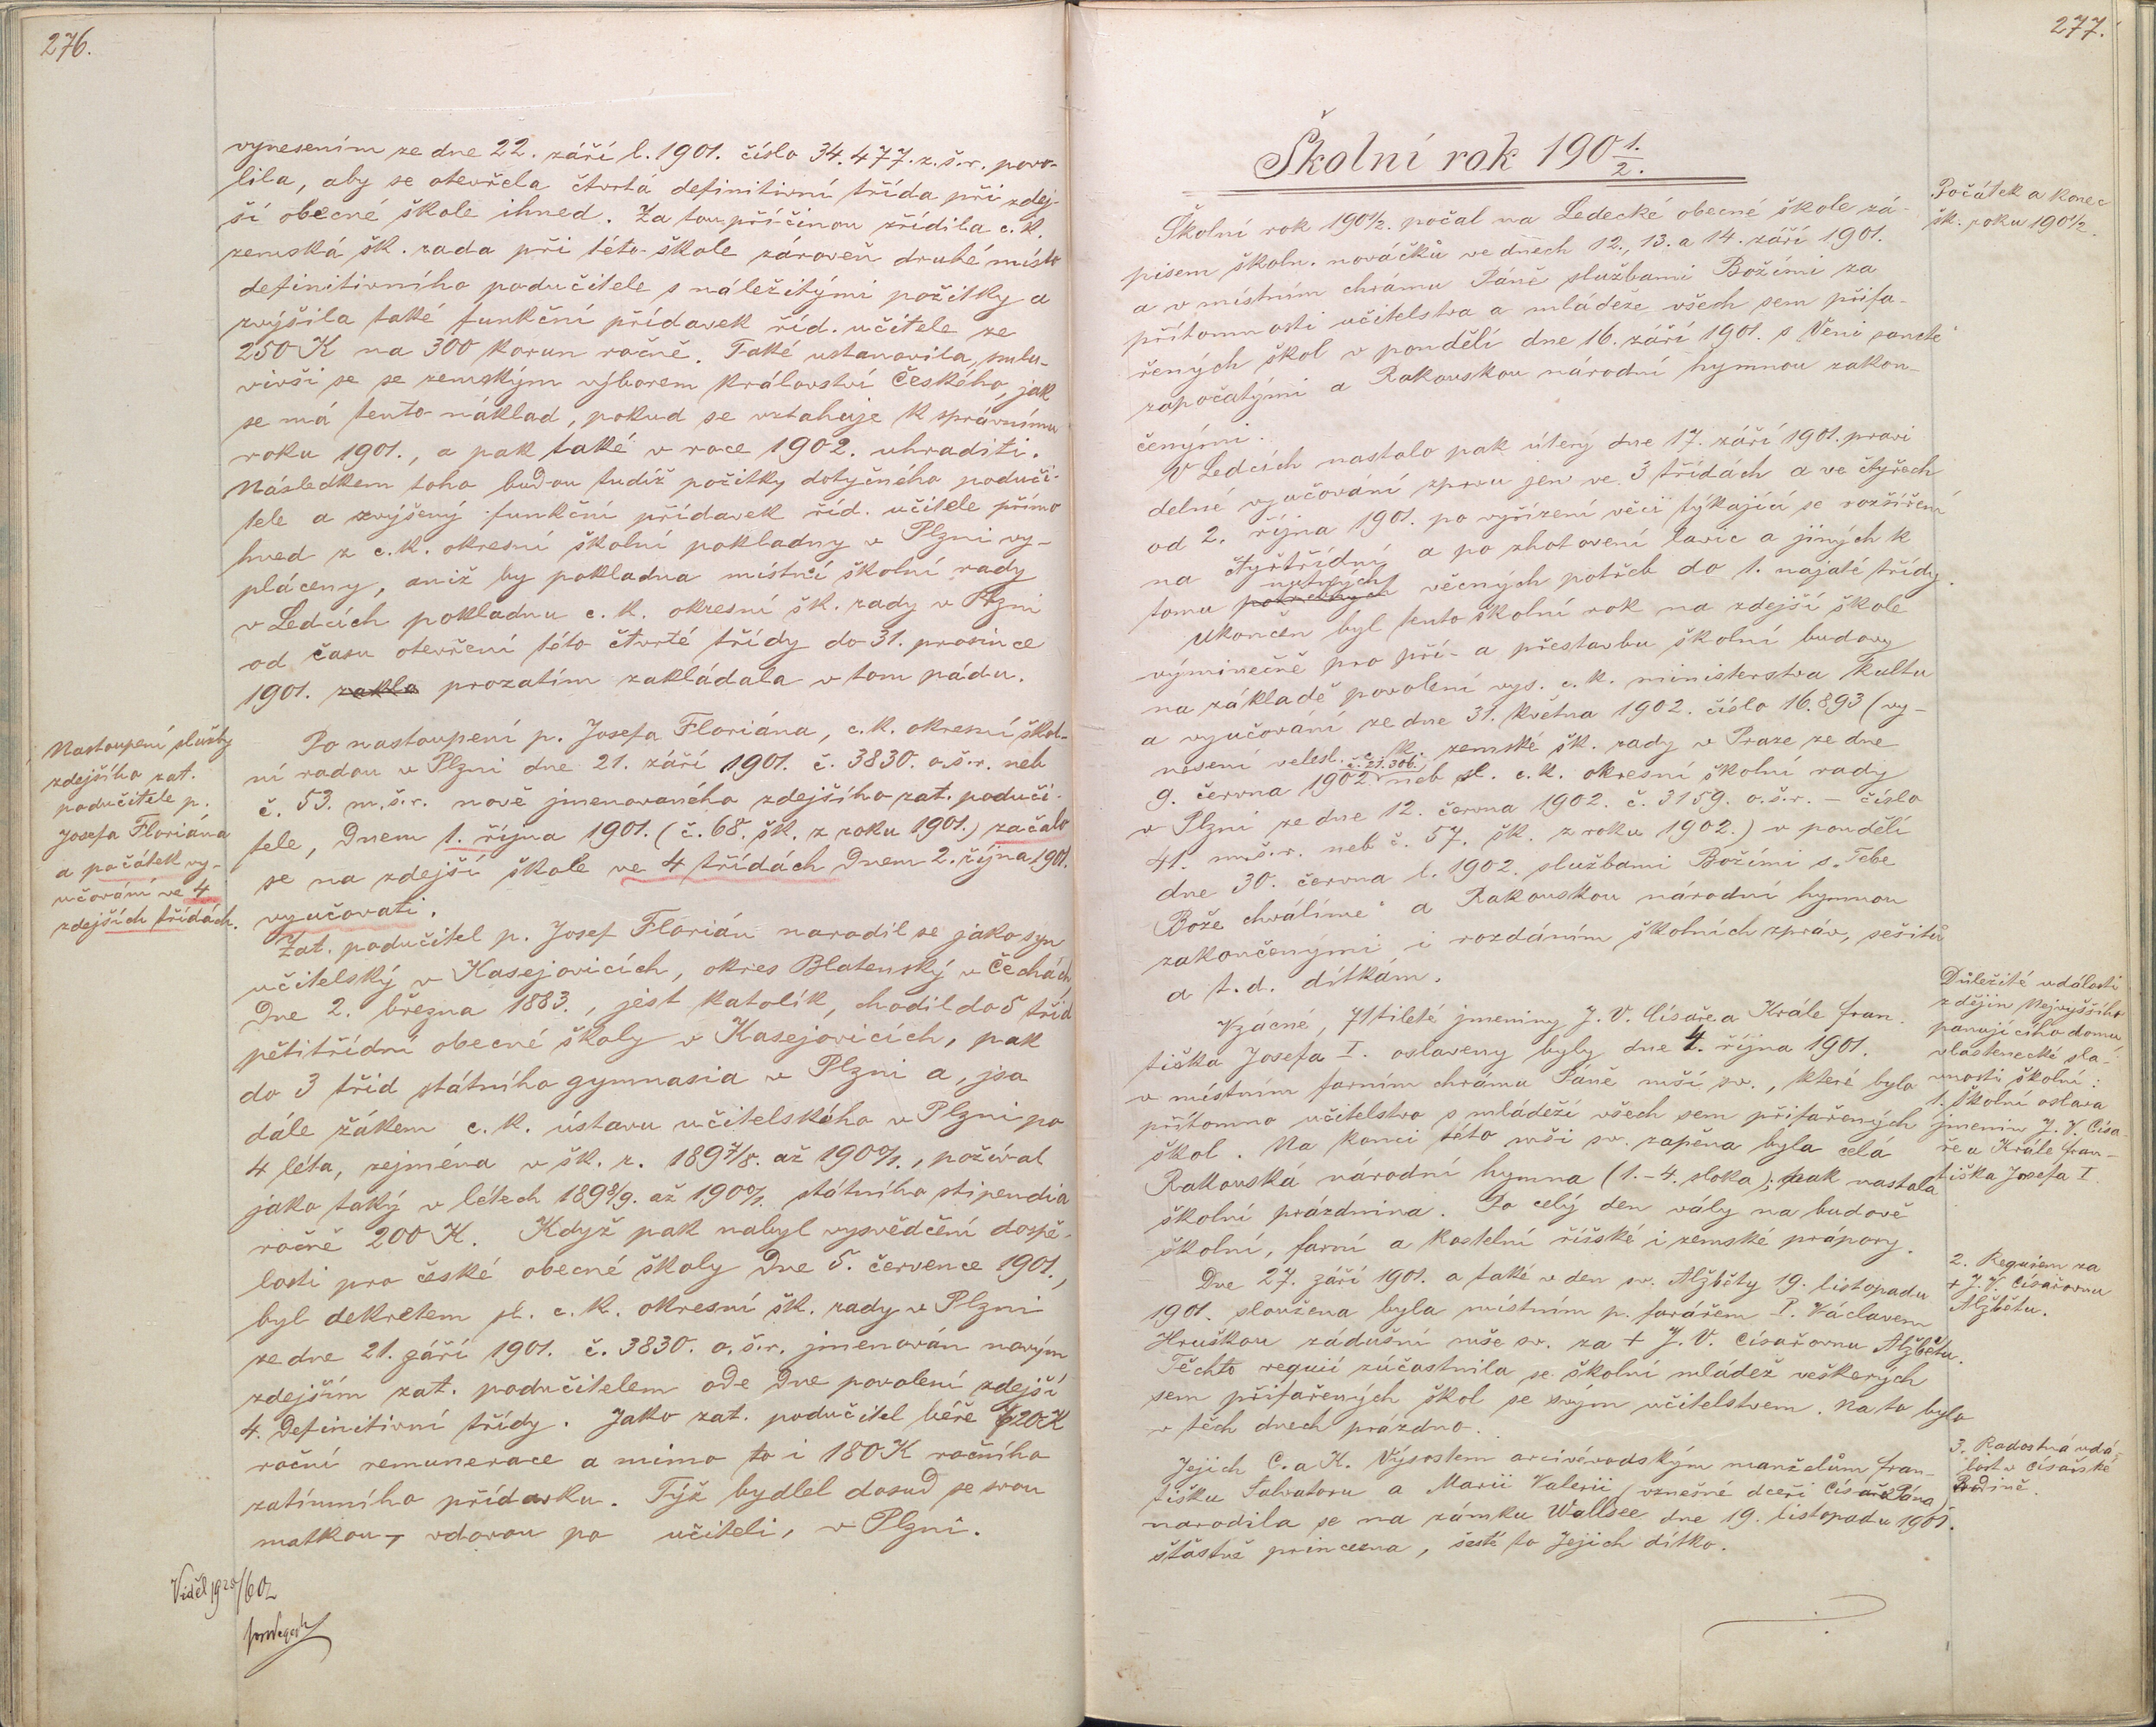 276.
vynesením ze dne 22. září l. 1901. číslo 34.477. z. š. r. povo-
lila, aby se otevřela čtvrtá definitivní třída při zdej-
ší obecné škole ihned. Za tou příčinou zřídila c. k.
zemská šk. rada při této škole zároveň druhé místo
definitivního podučitele s náležitými požitky a
zvýšila také funkční přídavek říd. učitele ze
250 K na 300 korun ročně. Také ustanovila, smlu-
vivši se se zemským výborem království Českého, jak
se má tento náklad, pokud se vztahuje k správnímu
roku 1901., a pak také v roce 1902. uhraditi.
Následkem toho budou tudíž požitky dotyčného poduči-
tele a zvýšený funkční přídavek říd. učitele přímo
hned z c. k. okresní školní pokladny v Plzni vy-
pláceny, aniž by pokladna místní školní rady
v Ledcích pokladnu c. k. okresní šk. rady v Plzni
od času otevření této čtvrté třídy do 31. prosince
1901. zakla prozatím zakládala v tom pádu.
Nastoupení služby
zdejšího zat.
podučitele p.
Josefa Floriána
a počátek vy-
učování ve 4
zdejších třídách.
Po nastoupení p. Josefa Floriána, c. k. okresní škol-
ní radou v Plzni dne 21. září 1901. č. 3830. o. š. r. neb
č. 53. m. š. r. nově jmenovaného zdejšího zat. poduči-
tele, dnem 1. října 1901. (č. 68. šk. z roku 1901.) začalo
se na zdejší škole ve 4 třídách dnem 2. října 1901.
vyučovati.
Zat. podučitel p. Josef Florián narodil se jako syn
učitelský v Kasejovicích, okres Blatenský v Čechách,
dne 2. března 1883., jest katolík, chodil do 5 tříd
pětitřídní obecné školy v Kasejovicích, pak
do 3 tříd státního gymnasia v Plzni a, jsa
dále žákem c. k. ústavu učitelského v Plzni po
4 léta, zejména v šk. r. 1897/8. až 1900/1., požíval
jako taký v létech 1898/9. až 1900/1. státního stipendia
ročně 200 K. Když pak nabyl vysvědčení dospě-
losti pro české obecné školy dne 5. července 1901.,
byl dekretem sl. c. k. okresní šk. rady v Plzni
ze dne 21. září 1901. č. 3830. o. š. r. jmenován novým
zdejším zat. podučitelem ode dne povolení zdejší
4. definitivní třídy. Jako zat. podučitel béře 720 K
roční remunerace a mimo to i 180 K ročního
zatímního přídavku. Týž bydlel dosud se svou
matkou, vdovou po učiteli, v Plzni.
Viděl
277.
Školní rok 1901./2.
Počátek a konec
šk. roku 1901/2.
Školní rok 1901/2. počal na Ledecké obecné škole zá-
pisem školn. nováčků ve dnech 12., 13. a 14. září 1901.
a v místním chrámu Páně službami Božími za
přítomnosti učitelstva a mládeže všech sem přifa-
řených škol v pondělí dne 16. září 1901. s „Veni sancte“
započatými a Rakouskou národní hymnou zakon-
čenými.
V Ledcích nastalo pak úterý dne 17. září 1901. pravi
delné vyučování zprvu jen ve 3 třídách a ve čtyřech
od 2. října 1901. po vyřízení věcí týkající se rozšíření
na čtyřtřídní a po zhotovení lavic a jiných k
tomu potřebných nutných věcných potřeb do 1. najaté třídy.
Ukončen byl tento školní rok na zdejší škole
výminečně pro pří- a přestavbu školní budovy
na základě povolení vys. c. k. ministerstva kultu
a vyučování ze dne 31. května 1902. číslo 16.893 (vy-
nesení velesl. c. k. zemské šk. rady v Praze ze dne
9. června 1902 č. 21.306. neb sl. c. k. okresní školní rady
v Plzni ze dne 12. června 1902. č. 3159. o. š. r. – číslo
41. m. š. r. neb č. 57. šk. z roku 1902.) v pondělí
dne 30. června l. 1902. službami Božími s „Tebe
Bože chválíme“ a Rakouskou národní hymnou
zakončenými i rozdáním školních zpráv, sešitů
a t. d. dítkám.
Důležité události
z dějin Nejvyššího
panujícího domu,
vlastenecké sla-
vnosti školní:
1. Školní oslava
jmenin J. V. Císa-
ře a Krále Fran-
tiška Josefa I.
Vzácné, 71tileté jmeniny J. V. Císaře a Krále Fran-
tiška Josefa I. oslaveny byly dne 4. října 1901.
v místním farním chrámu Páně mší sv., které bylo
přítomno učitelstvo s mládeží všech sem přifařených
škol. Na konci této mši sv. zapěna byla celá
Rakouská národní hymna (1.–4. sloka); pak nastala
školní prázdnina. Po celý den vály na budově
školní, farní a kostelní říšské i zemské prápory.
2. Requiem za
† J. V. Císařovnu
Alžbětu.
Dne 27. září 1901. a také v den sv. Alžběty 19. listopadu
1901. sloužena byla místním p. farářem P. Václavem
Hruškou zádušní mše sv. za † J. V. Císařovnu Alžbětu.
Těchto requií zúčastnila se školní mládež veškerých
sem přifařených škol se svým učitelstvem. Na to bylo
v těch dnech prázdno.
3. Radostná udá-
lost v císařské
Rodině.
Jejich C. a K. Výsostem arcivévodským manželům Fran-
tišku Salvatoru a Marii Valerii (vznešené dceři Císaře Pána)
narodila se na zámku Wallsee dne 19. listopadu 1901.
šťastně princezna, šesté to Jejich dítko.